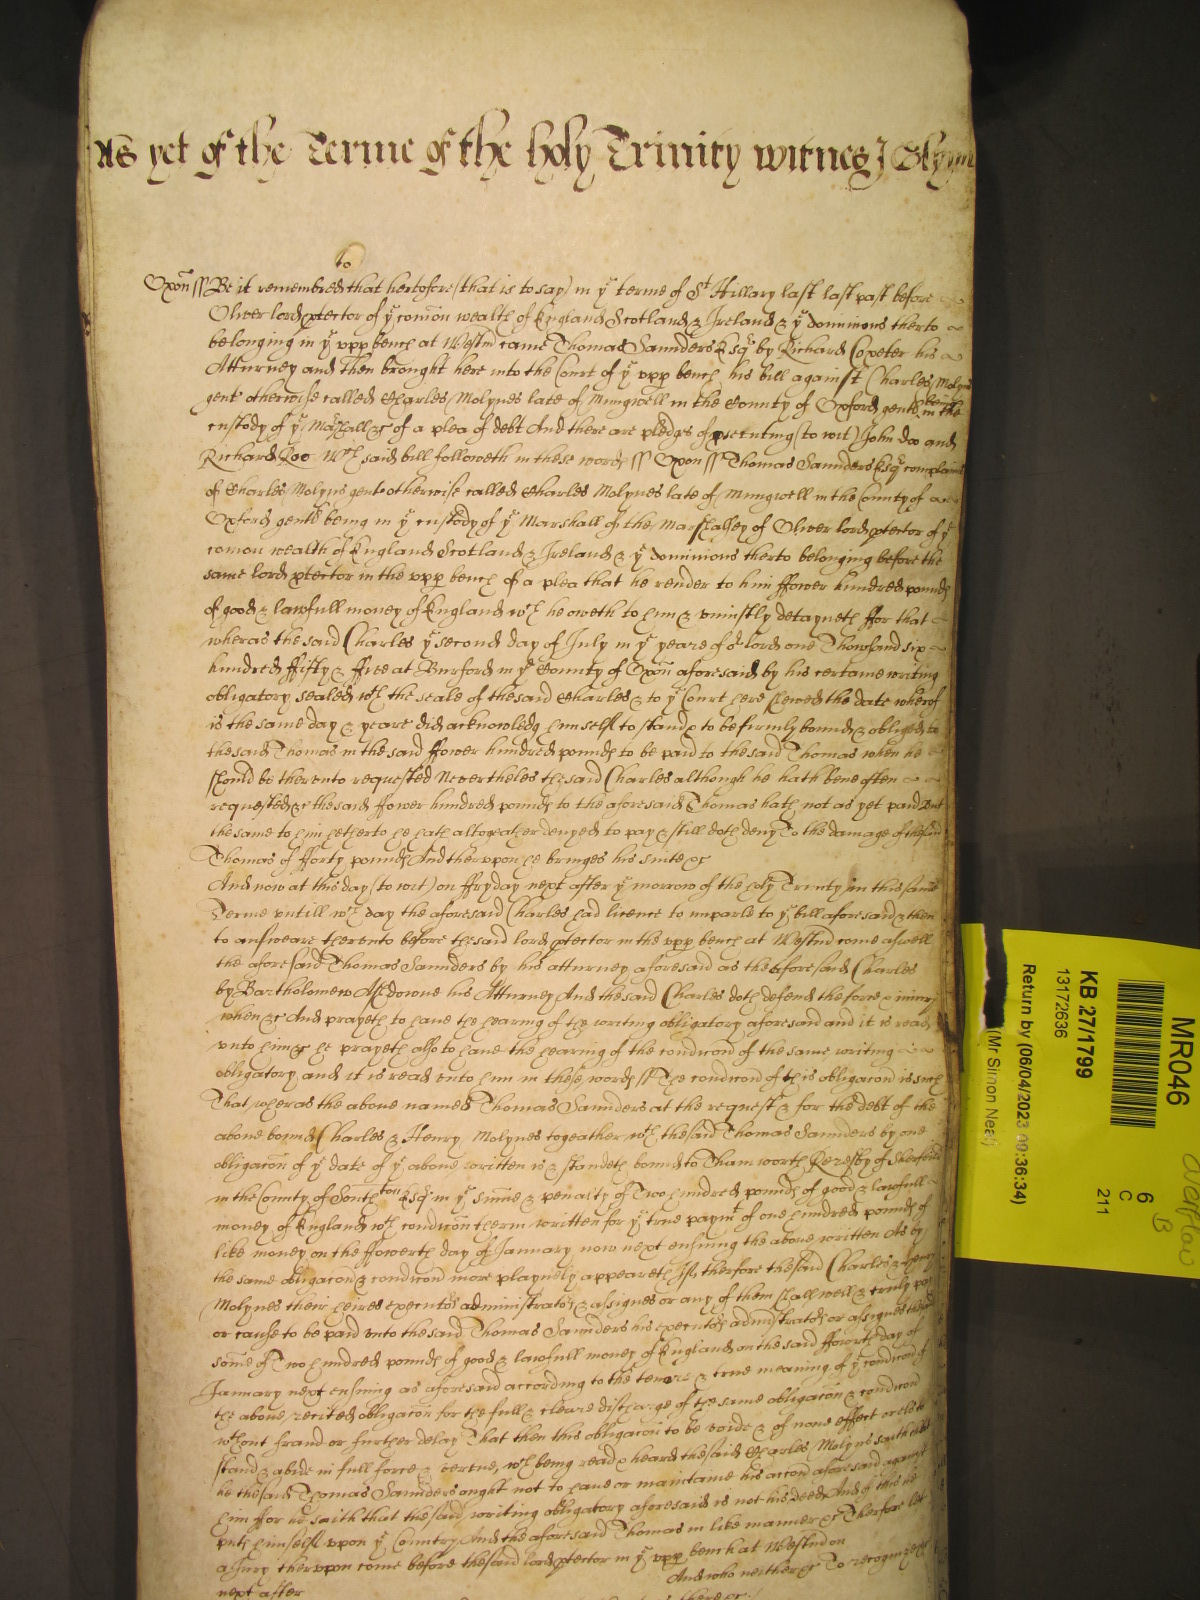 As yet of the Terme of the holy Trinity witnes J
to
Oxoñ ss Be it remembred that hertofore (that is to say) in yͤ terme of Sᵗ Hillary last last past before
Oliver lord ptector of yͤ comon wealth of England Scotland & Ireland & yͤ dominions therto
belonging in yͤ vpp bench at Westm̃ came Thomas Saunders Esqʳ by Richard Coxeter his
Atturney and then brought here into the Court of yͤ vpp bench his bill against Charles Molyns
gent otherwise called Charles Molynes late of Mungwell in the County of Oxford gentl being in the
custody of yͤ Marshall &c of a plea of debt And there are pledges of psecuting (to wit) John Doo and
Richard Roo Wᶜʰ said bill followeth in these words ss Oxon ss Thomas Saunders Esqʳ complaines
of Charles Molyns gent otherwise called Charles Molynes late of Mungwell in the County of
Oxford gentl being in yͤ custody of yͤ Marshall of the Marshalsey of Oliver lord ptector of yͤ
comon wealth of England Scotland & Ireland & yͤ dominions therto belonging before the
same lord ptector in the vpp bench of a plea that he render to him ffower hundred pounds
of good & lawfull money of England wᶜʰ he oweth to him & vniustly detayneth ffor that
wheras the said Charles yͤ second day of July in yͤ yeare of oʳ lord one Thowsand six
hundred ffifty & ffive at Burford in yͤ County of Oxoñ aforesaid by his certaine writing
obligatory sealed wᵗʰ the seale of the said Charles & to yͤ Court here shewed the date wherof
is the same day & yeare did acknowledg himself to stand & to be firmly bound & obliged to
the said Thomas in the said ffower hundred pounds to be paid to the said Thomas when he
should be therevnto requested Nevertheles the said Charles although he hath bene often
requested &c the said ffower hundred pounds to the aforesaid Thomas hath not as yet paid But
the same to him hetherto he hath altogeather denyed to pay & still doth deny To the damage of the said
Thomas of fforty pounds And thervpon he bringes his suite &c
And now at this day (to wit) on ffryday next after yͤ morrow of the holy Trinity in this same
Terme vntill wᶜʰ day the aforesaid Charles had licence to imparle to yͤ bill aforesaid & then
to answeare therevnto before the said lord ptector in the vpp bench at Westm̃ come aswell
the aforesaid Thomas Saunders by his atturney aforesaid as the aforesaid Charles
by Bartholomew his Atturney And the said Charles doth defend the force & iniury
when &c And prayeth to have the hearing of the writing obligatory aforesaid and it is read
vnto him &c he prayeth also to have the hearing of the condicon of the same writing
obligatory and it is read vnto him in these words ss The condicon of this obligacon is such
That wheras the above named Thomas Saunders at the request & for the debt of the
above bound Charles & Henry Molynes togeather wᵗʰ the said Thomas Saunders by one
obligacoñ of yͤ date of yͤ above written is & standeth bound to Thamworth Reresby of
in the County of Southᵗᵒⁿ Esqʳ in yͤ summe & penalty of Two hundred pounds of good & lawfull
money of England wᵗʰ condicon therin written for yͤ true paymᵗ of one hundred pounds of
like money on the ffowerth day of January now next ensuing the above written As by
the same obligacon & condicon more playnely appeareth If therfore the said Charles & Henry
Molynes their heires executoʳs administratoʳs & assignes or any of them shall well & truly pay
or cause to be paid vnto the said Thomas Saunders his executoʳs administratoʳs or assignes the said
some of Two hundred pounds of good & lawfull money of England on the said ffowrth day of
January next ensuing as aforesaid according to the tenore & true meaning of yͤ condicon of
the above recited obligacon for the full & cleare discharge of the same obligacon & condicon
wᵗʰout fraud or further delay That then this obligacon to be voide & of none effect or els to
stand & abide in full force & vertue, wᶜʰ being read & heard the said Charles Molyns saith that
he the said Thomas Saunders ought not to have or maintaine his accon aforesaid against
him ffor he saith that the said writing obligatory aforesaid is not his deed And of this he
puts himself vpon yͤ Country And the aforesaid Thomas in like manner &c Therfore let
a Jury thervpon come before the said lord ptector in yͤ vpp bench at Westm̃ on
next after And who neither &c To recognize
there &c
MR046
6
C
211
KB 27/1799
13172636
Return by (06/04/2023 09:36:34)
(Mr Simon Neal)
B